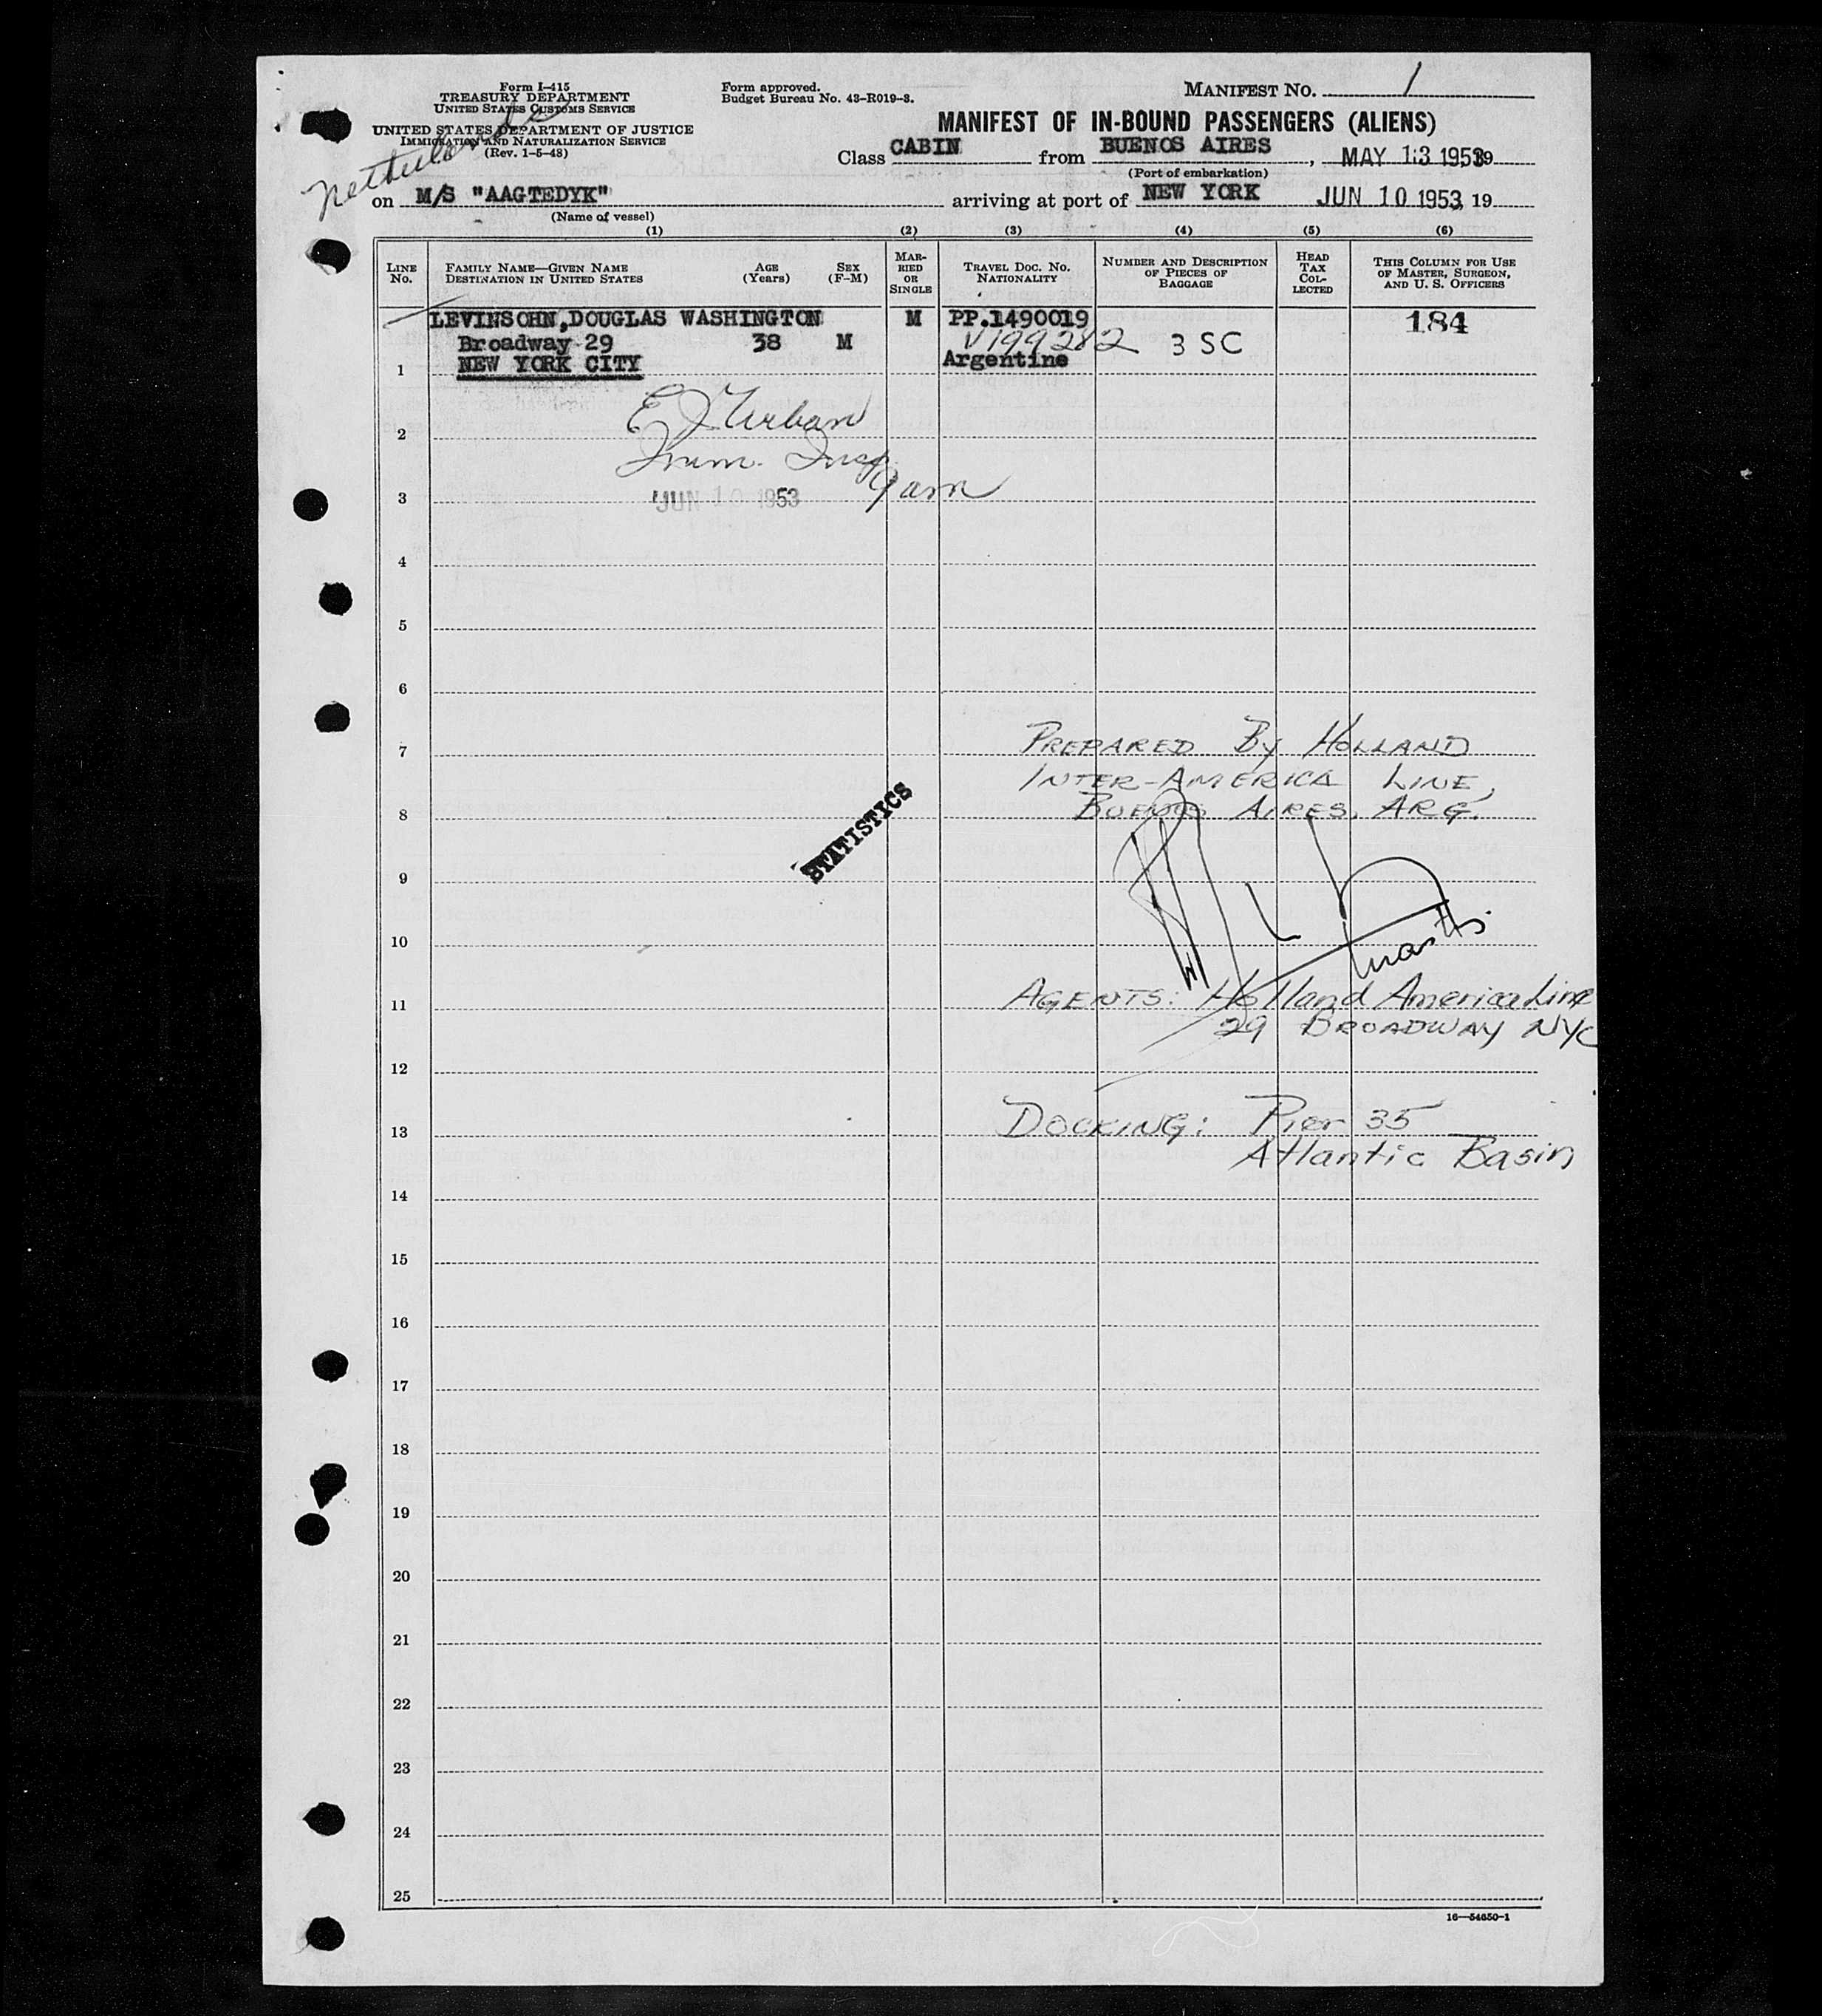 Form I-415
TREASURY DEPARTMENT
UNITED STATES CUSTOMS SERVICE
UNITED STATES DEPARTMENT OF JUSTICE
IMMIGRATION AND NATURALIZATION SERVICE
(Rev. 1-5-48)
Netherlands
Form approved.
Budget Bureau No. 43-R019-3.
MANIFEST NO. 1
MANIFEST OF IN-BOUND PASSENGERS (ALIENS)
Class CABIN from BUENOS AIRES, MAY 13 1953 19
(Port of embarkation)
on M/S "AAGTEDYK" arriving at port of NEW YORK JUN 10 1953, 19
(Name of vessel)
(1) (2) (3) (4) (5) (6)
LINE NO. FAMILY NAME—GIVEN NAME DESTINATION IN UNITED STATES AGE (Years) SEX (F-M) MARRIED OR SINGLE TRAVEL DOC. NO. NATIONALITY NUMBER AND DESCRIPTION OF PIECES OF BAGGAGE HEAD TAX COLLECTED THIS COLUMN FOR USE OF MASTER, SURGEON, AND U. S. OFFICERS
LEVINSOHN, DOUGLAS WASHINGTON M PP.1490019 184
Broadway 29 38 M V199282 3 SC
1 NEW YORK CITY Argentine
E J Urban
2
Imm. Insp
9 am
3 JUN 10 1953
4
5
6
PREPARED BY HOLLAND
7
INTER-AMERICA LINE,
BUENOS AIRES, ARG.
8
STATISTICS
9
10
AGENTS: Holland America Line
11
29 BROADWAY NYC
12
DOCKING: Pier 35
13
Atlantic Basin
14
15
16
17
18
19
20
21
22
23
24
25
16—54650-1